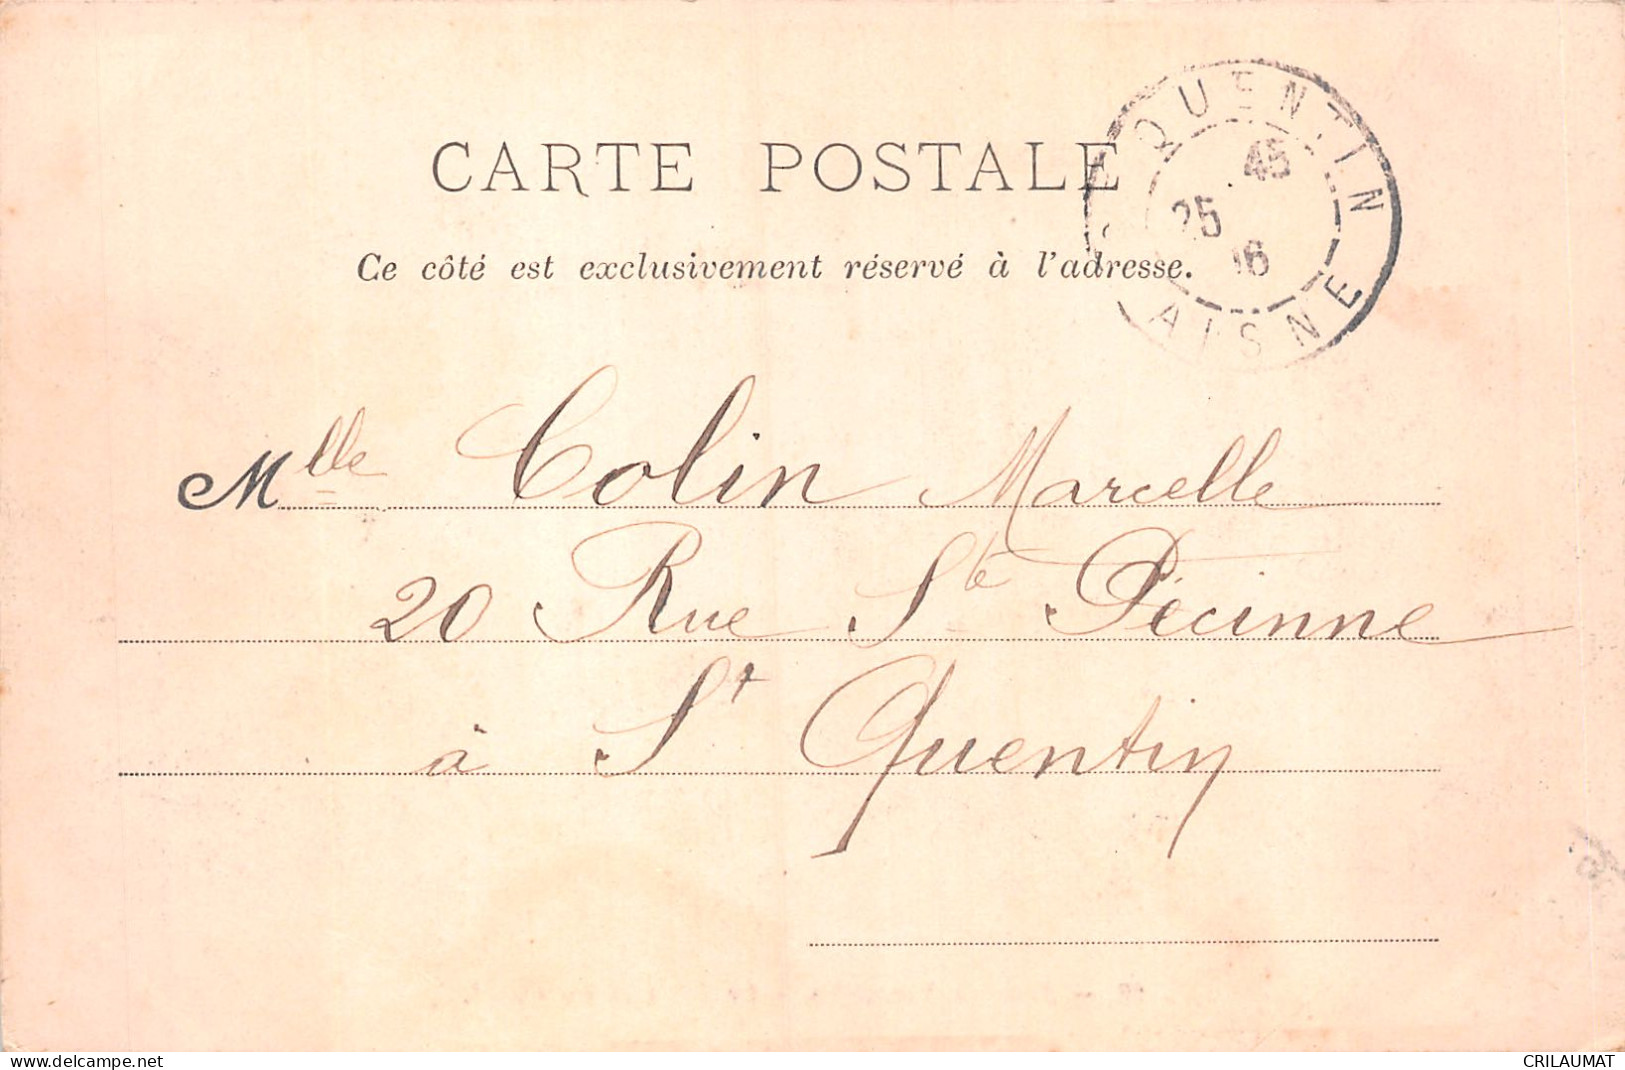 CARTE POSTALE
Ce côté est exclusivement réservé à l'adresse.
QUENTIN
45
25
16
AISNE
Mlle Colin Marcelle
20 Rue Ste Pécinne
à St Quentin
www.delcampe.net
CRILAUMAT